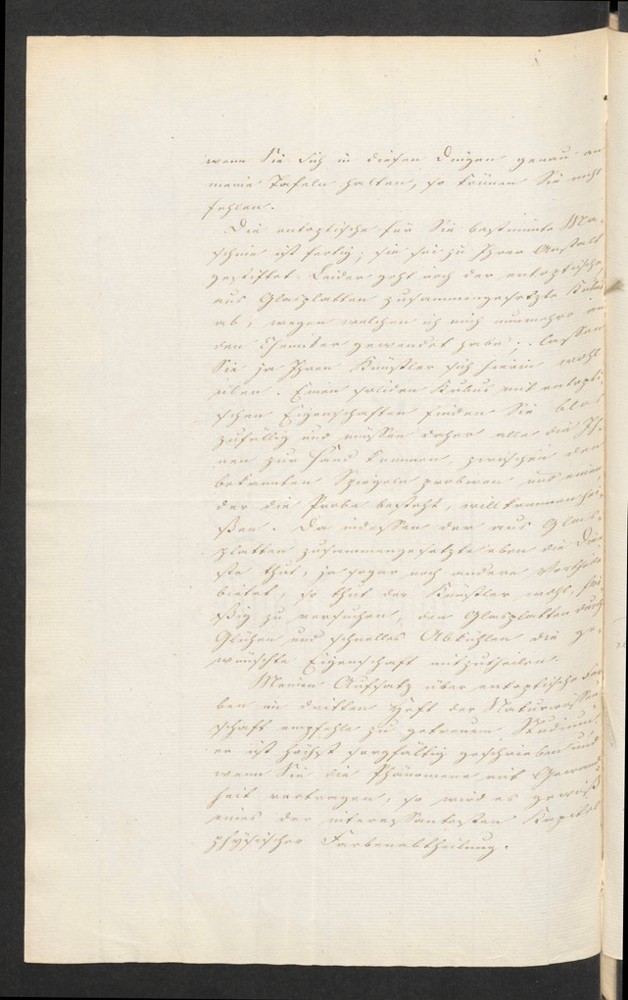 wenn Sie sich in diesen Dingen genau an
meine Tafeln halten, so können Sie nicht
fehlen.
Die entoptische für Sie bestimmte Ma-
schine ist fertig; sie sei zu Ihrer Anstalt
gestiftet. Leider geht noch der entoptische,
aus Glasplatten zusammengesetzte Kubus
ab, wegen welchen ich mich nunmehro an
den Chemiker gewendet habe; lassen
Sie ja Ihren Künstler sich hierin wohl
üben. Einen soliden Kubus mit entopti-
schen Eigenschaften finden Sie blos
zufällig und müssen daher alle die Ih-
nen zur Hand kommen, zwischen den
bekannten Spiegeln probiren und einen
der die Probe besteht, willkommen hei-
ßen. Da indessen der aus Glas-
platten zusammengesetzte eben die Dien-
ste thut, ja sogar noch andere Vortheile
bietet, so thut der Künstler wohl, flei-
ßig zu versuchen, den Glasplatten durch
Glühen und schnelles Abkühlen die ge-
wünschte Eigenschaft mitzutheilen.
Meinen Aufsatz über entoptische Far-
ben im dritten Heft der Naturwissen-
schaft empfehle zu getreuem Studium,
er ist höchst sorgfältig geschrieben und
wenn Sie die Phänomene mit Gewand-
heit vortragen, so wird es gewiß
eines der interessantesten Kapitel
physischer Farbenabtheilung.